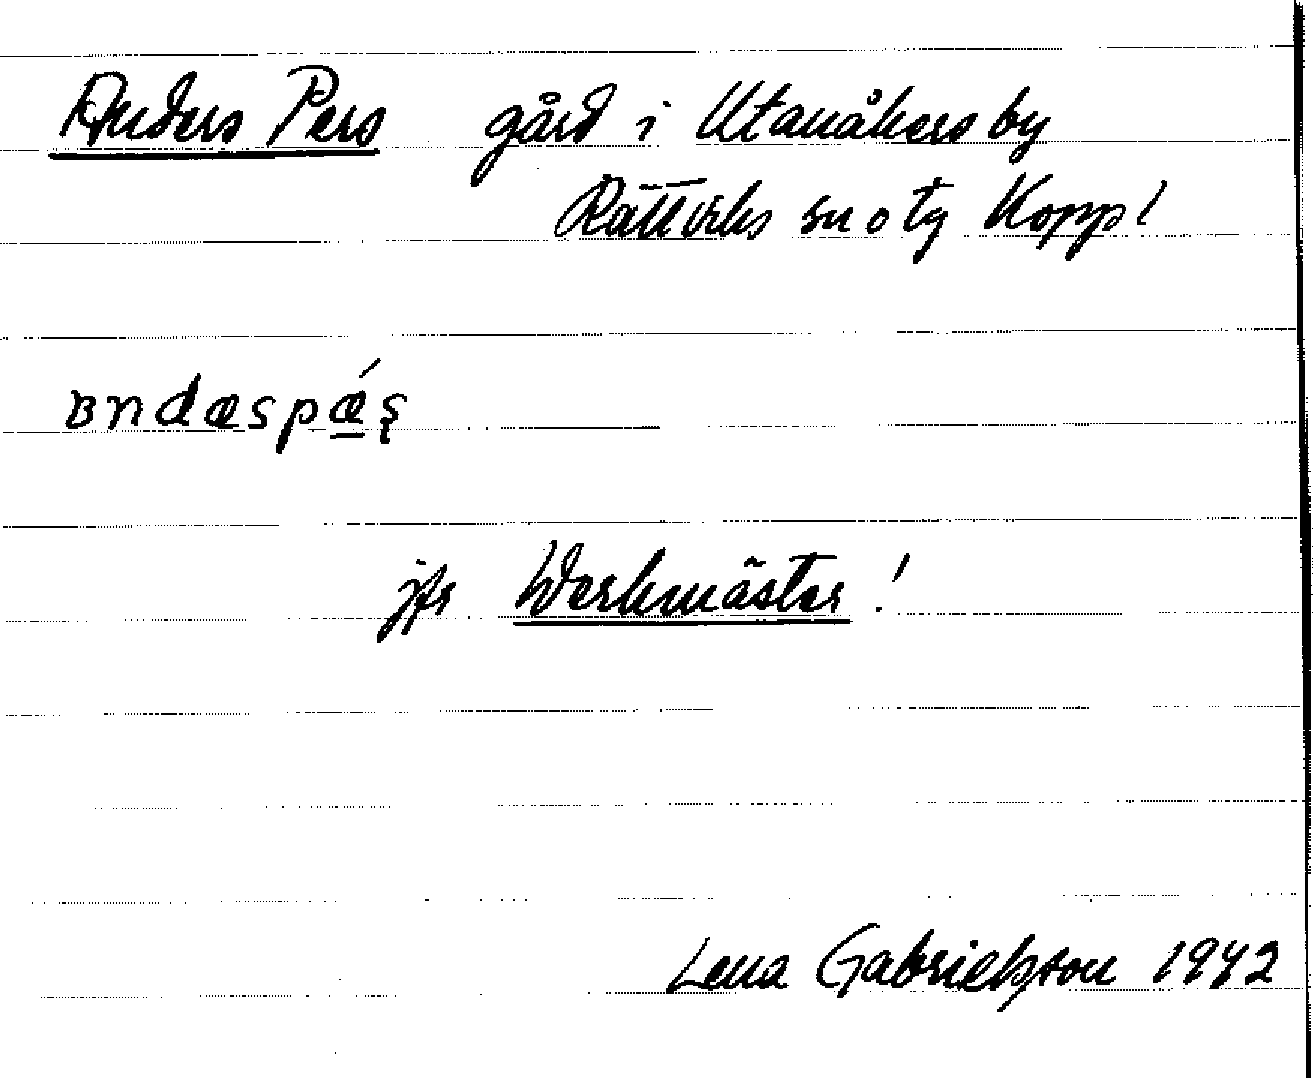 Anders Pers gård i Utanåkers by
Rättviks sn o tg Kopp l
andæspǽş
jfr Werkmäster!
Lena Gabrielsson 1942